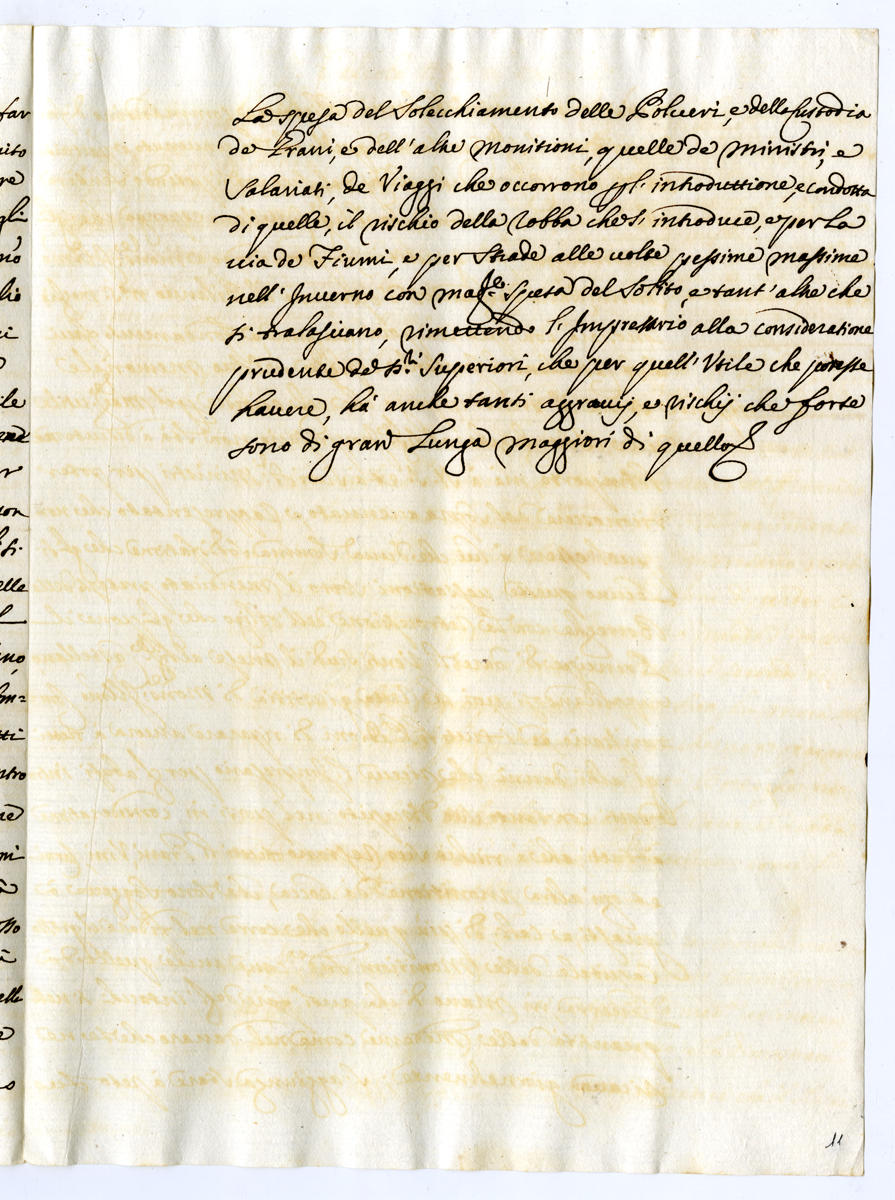 La spesa del Solecchiamento delle Polveri, e della custodia
de Grani, e dell'altre Monitioni, quelle de Ministri, e
Salariati, de Viaggi che occorrono p l'introduttione, e condotta
di quelle, il rischio della robba che s'introduce, e per la
via de Fiumi, e per Strade alle volte pessime massime
nell'Inverno con mag.re Spesa del Solito, e tant'altre che
si tralasciano, rimettendo l'Impressario alla consideratione
prudente de Sri. Superiori, che per quell'Utile che potesse
havere, hà anche tanti aggravij, e rischij che forse
sono di gran Lunga maggiori di quello
11